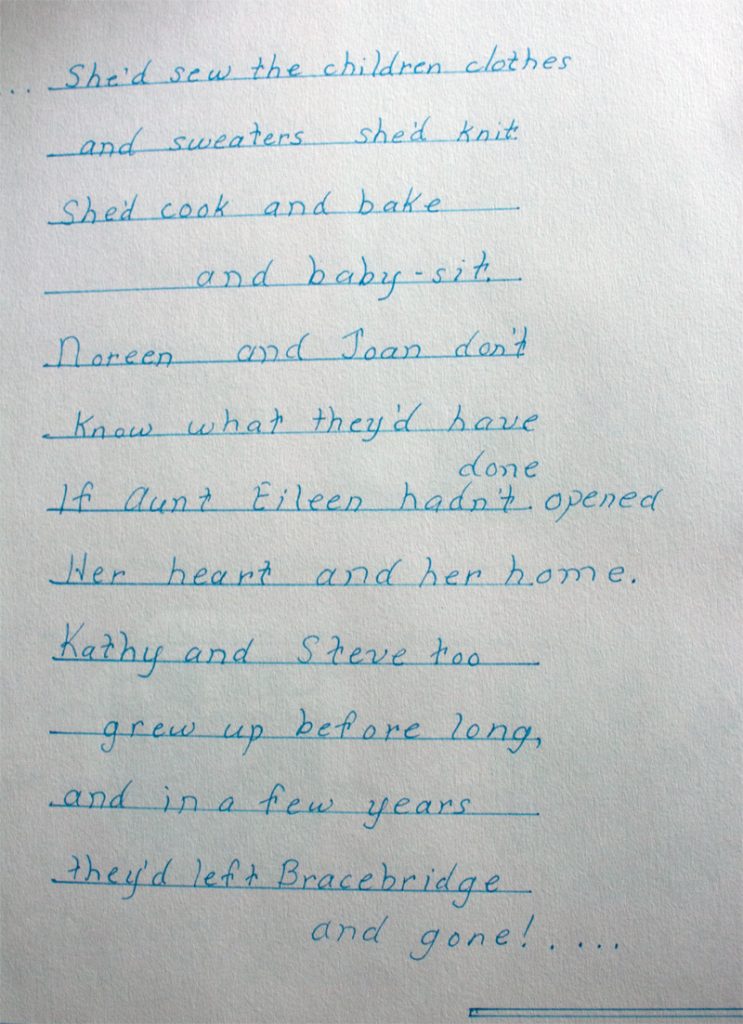 ... She'd sew the children clothes
and sweaters she'd knit.
She'd cook and bake
and baby-sit.
Noreen and Joan don't
know what they'd have
done
If Aunt Eileen hadn't opened
Her heart and her home.
Kathy and Steve too
grew up before long,
and in a few years
they'd left Bracebridge
and gone!....